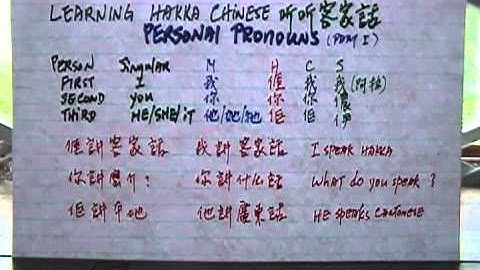 LEARNING HAKKA CHINESE 听听客家話
PERSONAL PRONOUNS (PART I)
PERSON Singular M H C S
FIRST I 我 𠊎 我 我 (阿拉)
SECOND you 你 你 你 儂
THIRD HE/SHE/IT 他/她/牠 佢 佢 伊
𠊎討客家話 我討客家話 I SPEAK HAKKA
你討麼介? 你討什么話 What do you speak?
佢討 他討廣東話 HE SPEAKS CANTONESE